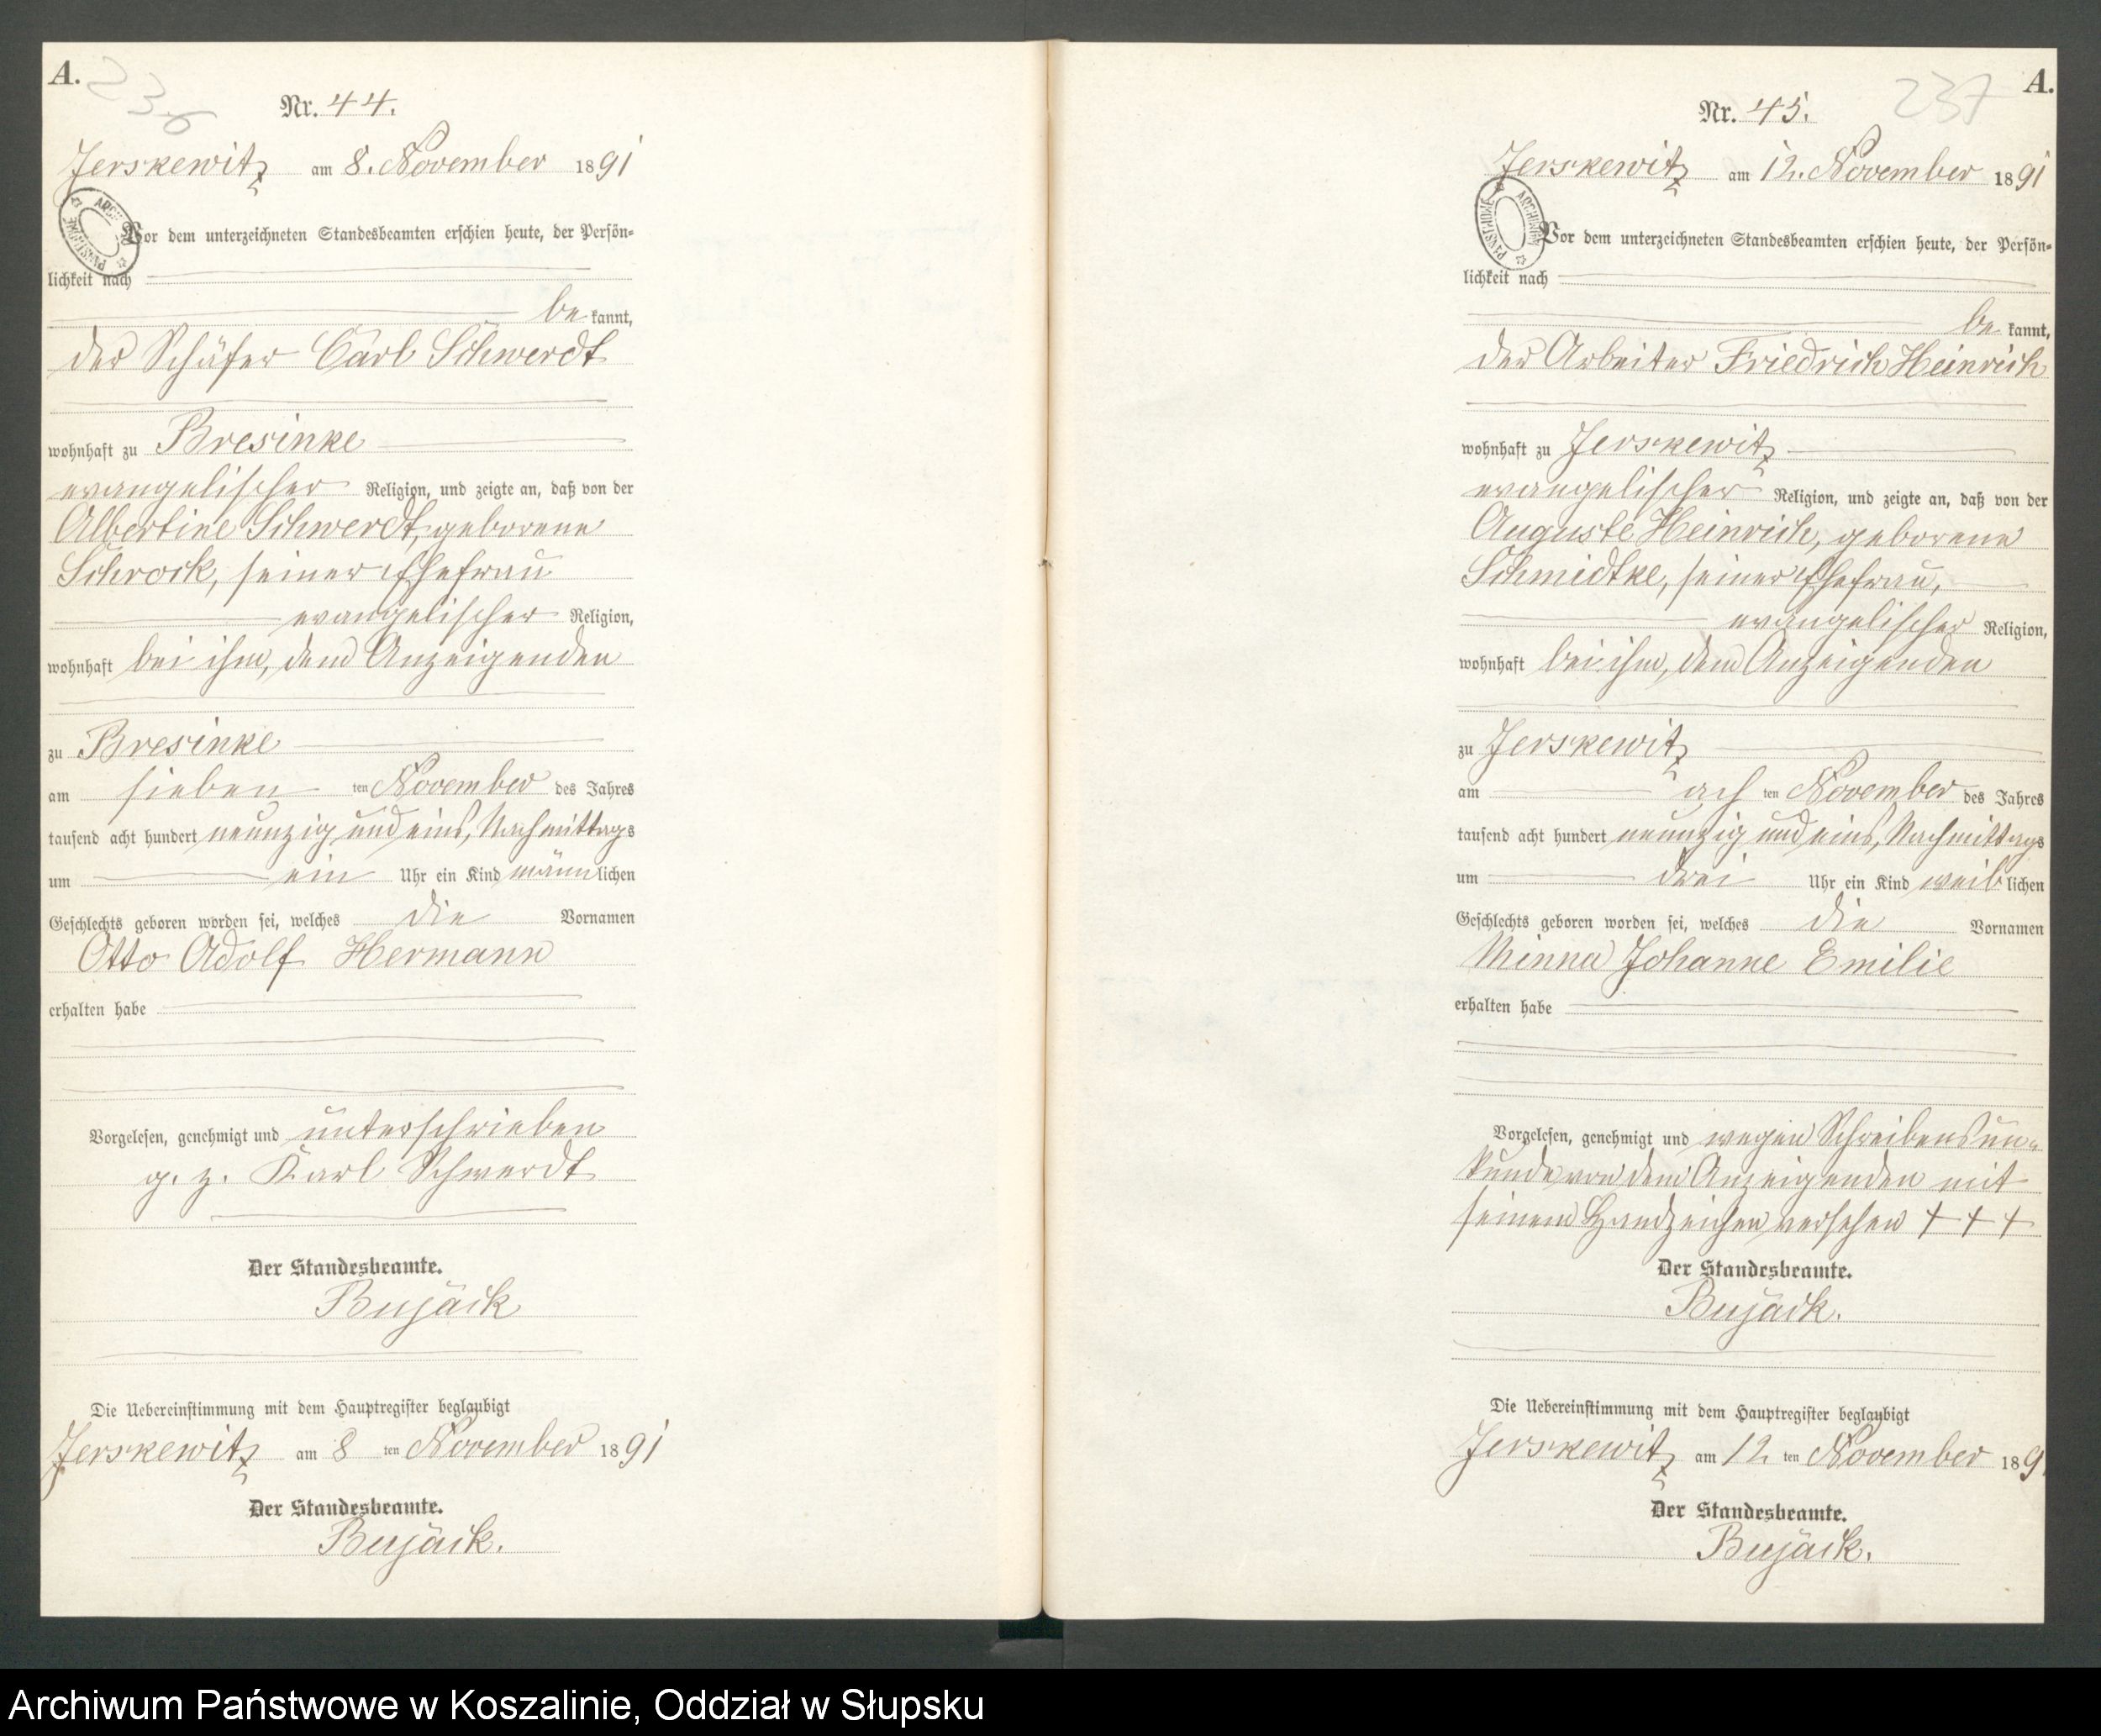 A.
236
Nr. 44.
Jerskewitz am 8. November 1891
Vor dem unterzeichneten Standesbeamten erschien heute, der Persön-
lichkeit nach
be kannt,
der Schäfer Carl Schwerdt
wohnhaft zu Bresinke
evangelischer Religion, und zeigte an, daß von der
Albertine Schwerdt, geborene
Schrock, seiner Ehefrau
evangelischer Religion,
wohnhaft bei ihm, dem Anzeigenden
zu Bresinke
am sieben ten November des Jahres
tausend acht hundert neunzig und eins, Nachmittags
um ein Uhr ein Kind männlichen
Geschlechts geboren worden sei, welches die Vornamen
Otto Adolf Hermann
erhalten habe
Vorgelesen, genehmigt und unterschrieben
g. z. Karl Schwerdt
Der Standesbeamte.
Bujäck
Die Uebereinstimmung mit dem Hauptregister beglaubigt
Jerskewitz am 8 ten November 1891
Der Standesbeamte.
Bujäck.
237
A.
Nr. 45.
Jerskewitz am 12. November 1891
ARCHIWUM PAŃSTWOWE
Vor dem unterzeichneten Standesbeamten erschien heute, der Persön-
lichkeit nach
be kannt,
der Arbeiter Friedrich Heinrich
wohnhaft zu Jerskewitz
evangelischer Religion, und zeigte an, daß von der
Auguste Heinrich, geborene
Schmidtke, seiner Ehefrau,
evangelischer Religion,
wohnhaft bei ihm, dem Anzeigenden
zu Jerskewitz
am ach ten November des Jahres
tausend acht hundert neunzig und eins, Nachmittags
um drei Uhr ein Kind weiblichen
Geschlechts geboren worden sei, welches die Vornamen
Minna Johanne Emilie
erhalten habe
Vorgelesen, genehmigt und wegen Schreibensun-
kunde von dem Anzeigenden mit
seinem Handzeichen versehen + + +
Der Standesbeamte.
Bujäck.
Die Uebereinstimmung mit dem Hauptregister beglaubigt
Jerskewitz am 12. ten November 189
Der Standesbeamte.
Bujäck.
Archiwum Państwowe w Koszalinie, Oddział w Słupsku